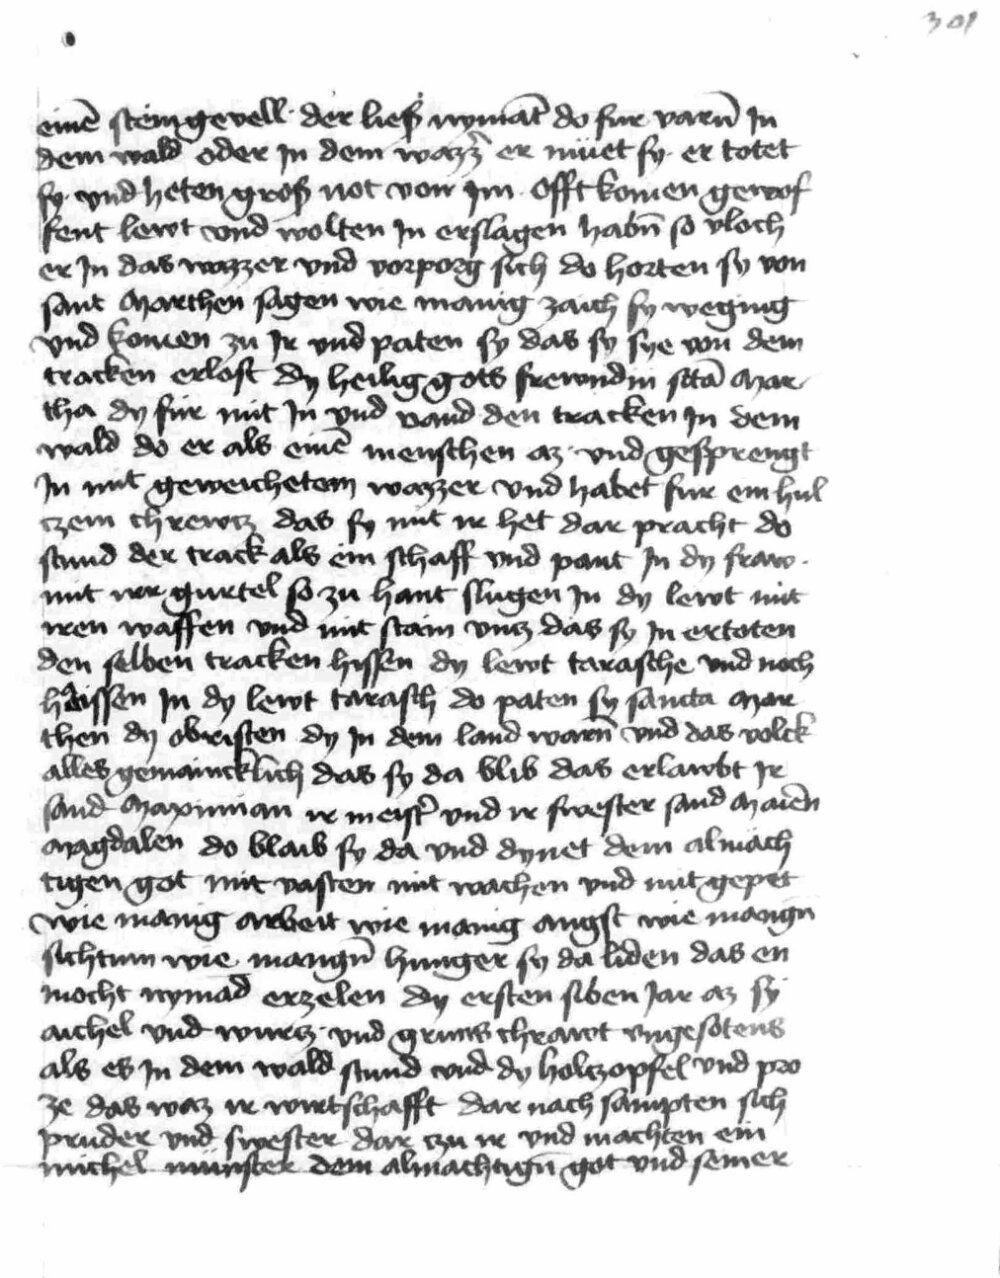 301
einē steingevell · der lieſß nymāt do fur varn̄ In
dem wald oder In dem wazz̄ er müet sy · er totet
sy · vnd heten groß not von Im · offt komen gewof
fent lewt vnd wolten In erslagen habn̄ so vloch
er In das wazzer vnd vorporg sich do horten sy von
sant Marthen sagen wie manig zaich sy weging
vnd komen zu Ir vnd paten sy das sy sye von dem
tracken erlost dy heilig gots frewndin sctā Mar
tha dy für mit In vnd vand den tracken In dem
wald do er als einē menschen az · vnd gesprengt
In mit geweichetem wazzer vnd habet fur ein hul
czem chrewcz das sy mit ir het dar pracht do
stund der track als ein schaff vnd pant In dy fraw ·
mit irr gurtel so zu hant slugen In dy lewt mit
iren waffen vnd mit stain vncz das sy In ertoten
den selben tracken hissen dy lewt tarasche vnd noch
haissen In dy lewt tarasch do paten sy sancta Mar
then dy obristen dy In dem land warn̄ vnd das volck
alles gemaincklich das sy da blib das erlawbt Ir
sand Maximian ir meist̄ vnd ir swester sand Mariēn
Magdalen do blaib sy da vnd dynet dem almäch
tigen got mit vasten mit wachen vnd mit gepet
wie manig arbeit wie manig angst wie mangn
sichtum wie mangn̄ hunger sy da liden das en
mocht nymād erzelen dy ersten siben Jar az sy
aichel vnd wurcz vnd gruns chrawt vngesotens
als es In dem wald stund vnd dy holczopfel vnd pro
ze das waz ir wirtschafft dar nach sampten sich
pruder vnd swester dar czu ir vnd machten ein
michel münster dem almachtign̄ got vnd seiner